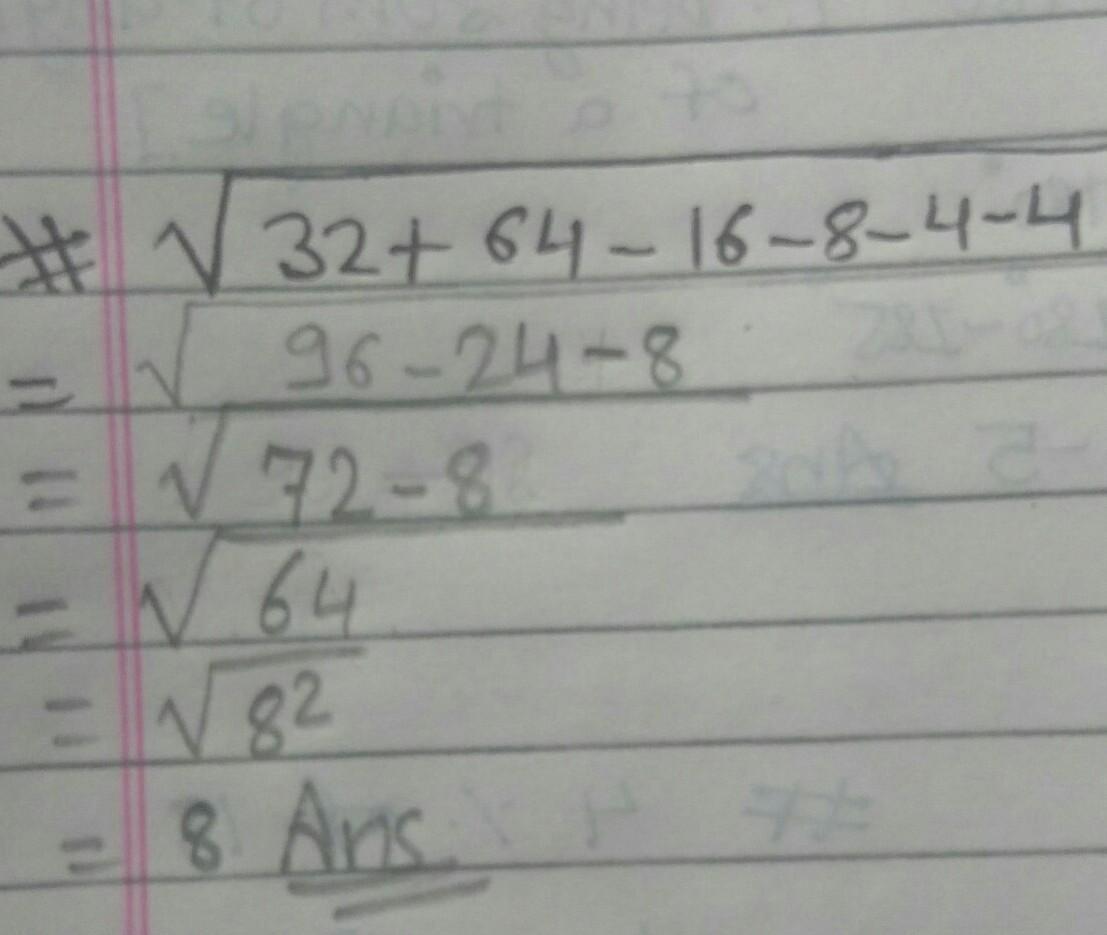 # √32+64-16-8-4-4
= √96-24-8
= √72-8
= √64
= √8²
= 8 Ans